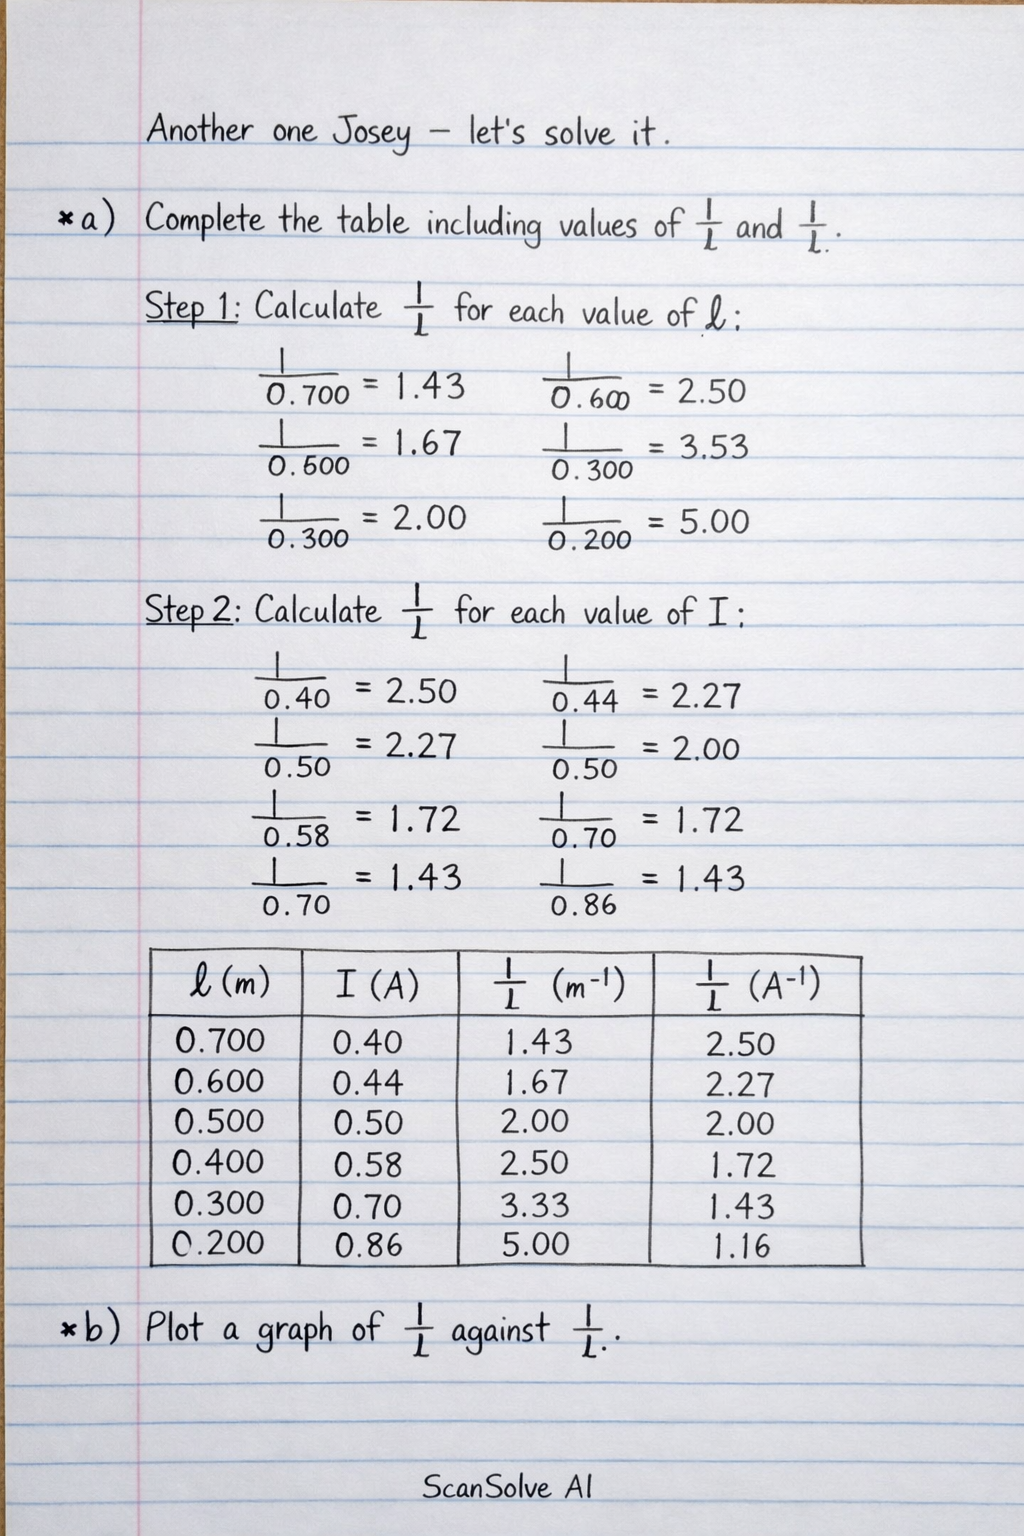 Another one Josey – let's solve it.
*a) Complete the table including values of 1/l and 1/l.
Step 1: Calculate 1/l for each value of l:
1/0.700 = 1.43 1/0.600 = 2.50
1/0.600 = 1.67 1/0.300 = 3.53
1/0.300 = 2.00 1/0.200 = 5.00
Step 2: Calculate 1/l for each value of I:
1/0.40 = 2.50 1/0.44 = 2.27
1/0.50 = 2.27 1/0.50 = 2.00
1/0.58 = 1.72 1/0.70 = 1.72
1/0.70 = 1.43 1/0.86 = 1.43
l (m) I (A) 1/l (m⁻¹) 1/l (A⁻¹)
0.700 0.40 1.43 2.50
0.600 0.44 1.67 2.27
0.500 0.50 2.00 2.00
0.400 0.58 2.50 1.72
0.300 0.70 3.33 1.43
0.200 0.86 5.00 1.16
*b) Plot a graph of 1/l against 1/l.
ScanSolve AI